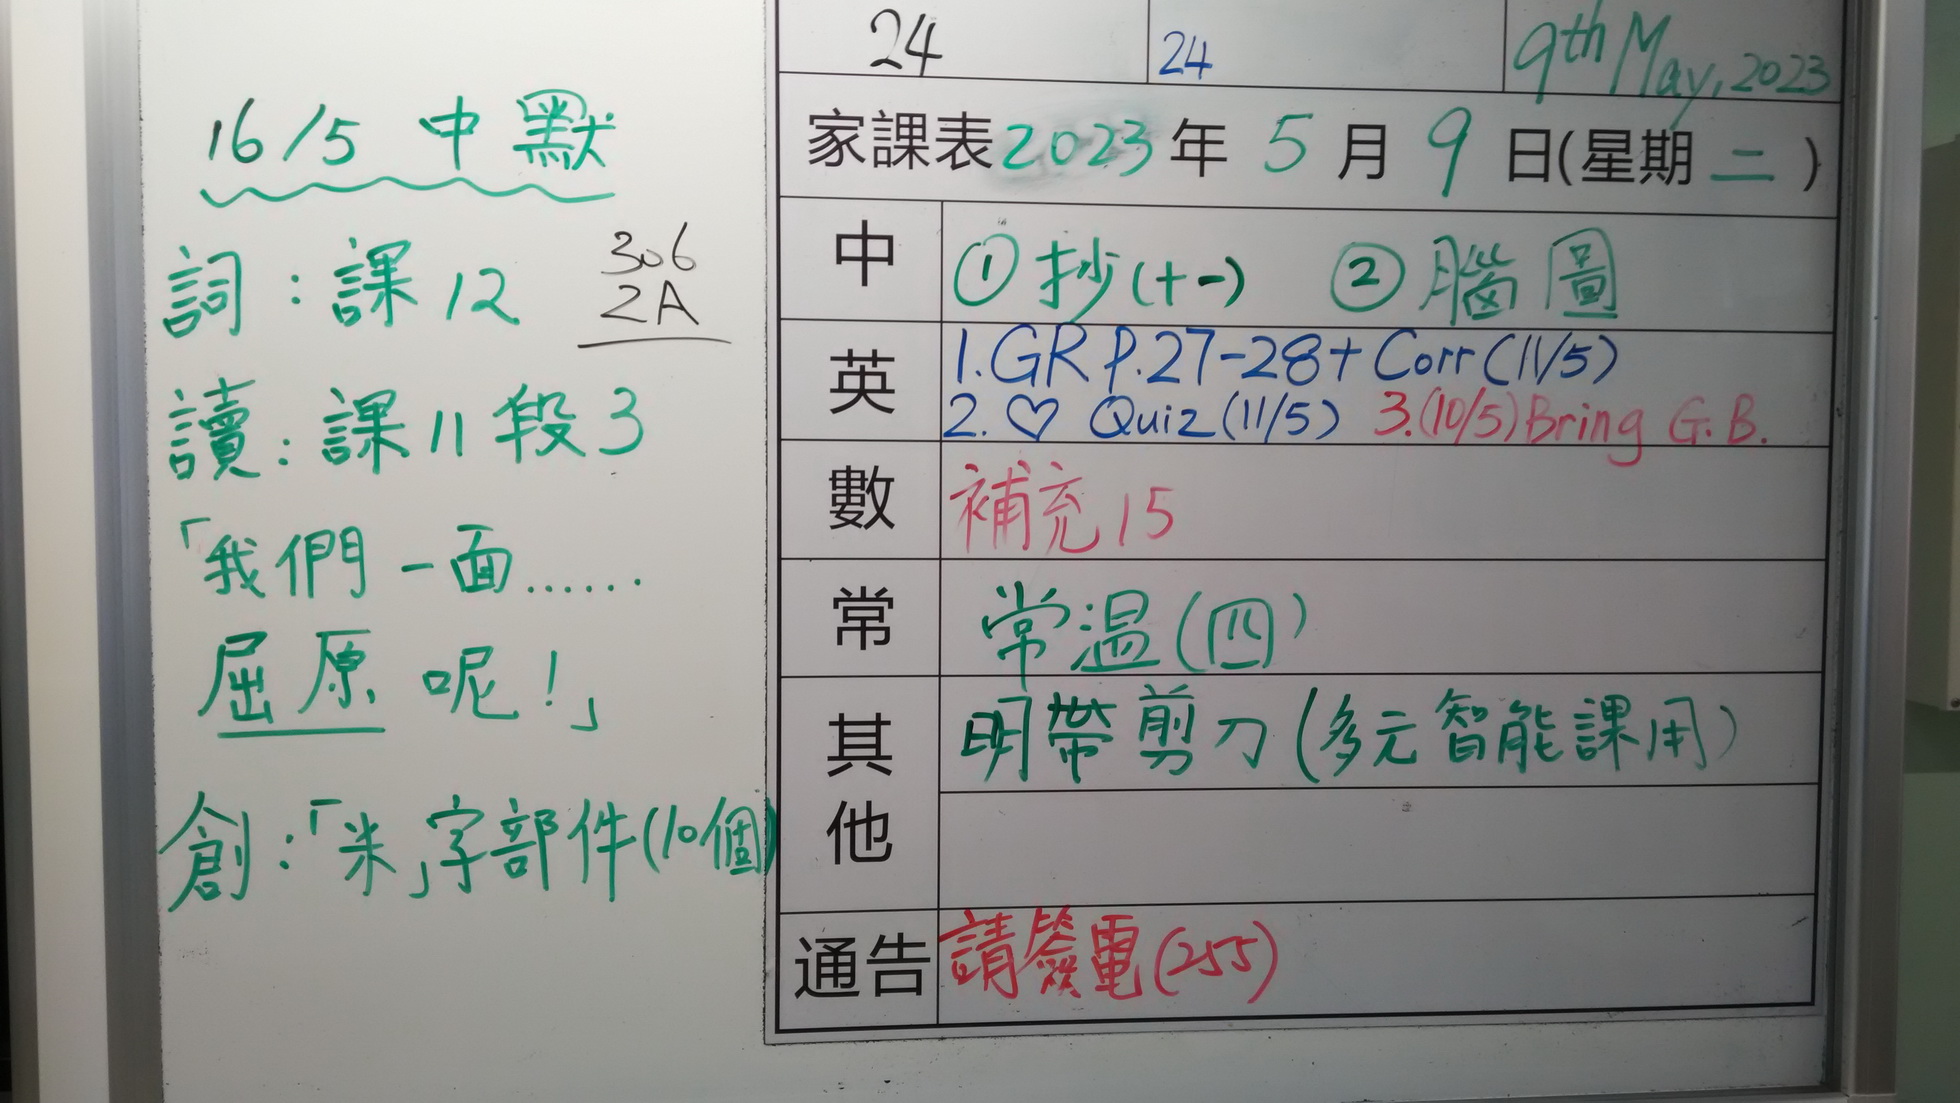 16/5 中默
詞：課12
306
2A
讀：課11段3
「我們一面……
屈原呢！」
創：「米」字部件(10個)
24 24 9th May, 2023
家課表2023年5月9日(星期二)
中 ①抄(十一) ②腦圖
英 1.GR P.27-28+Corr(11/5)
2.♡ Quiz(11/5) 3.(10/5)Bring G.B.
數 補充15
常 常温(四)
其他 明帶剪刀(多元智能課用)
通告 請簽電(255)